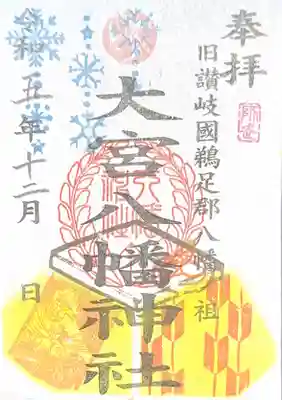 奉拝
旧讃岐國鵜足郡八幡祖
大宮八幡神社
令和五年十二月 日